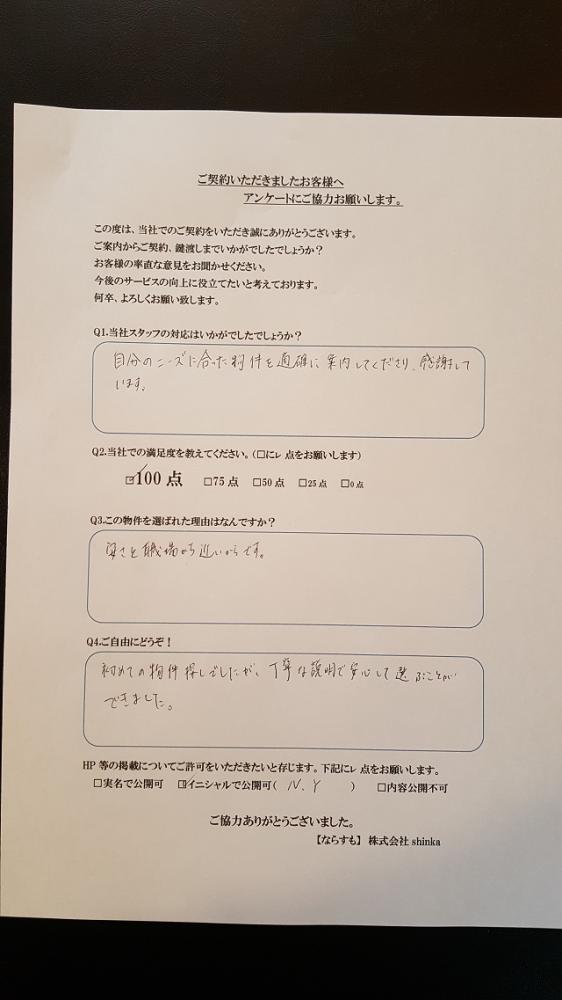 ご契約いただきましたお客様へ
アンケートにご協力お願いします。
この度は、当社でのご契約をいただき誠にありがとうございます。
ご案内からご契約、鍵渡しまでいかがでしたでしょうか？
お客様の率直な意見をお聞かせください。
今後のサービスの向上に役立てたいと考えております。
何卒、よろしくお願い致します。
Q1.当社スタッフの対応はいかがでしたでしょうか？
自分のニーズに合った物件を適確に案内してくださり、感謝して
います。
Q2.当社での満足度を教えてください。（□にレ点をお願いします）
☑100点 □75点 □50点 □25点 □0点
Q3.この物件を選ばれた理由はなんですか？
安さと職場から近いからです。
Q4.ご自由にどうぞ！
初めての物件探しでしたが、丁寧な説明で安心して選ぶことが
できました。
HP等の掲載についてご許可をいただきたいと存じます。下記にレ点をお願いします。
□実名で公開可 ☑イニシャルで公開可( N.Y ) □内容公開不可
ご協力ありがとうございました。
【ならすも】株式会社shinka